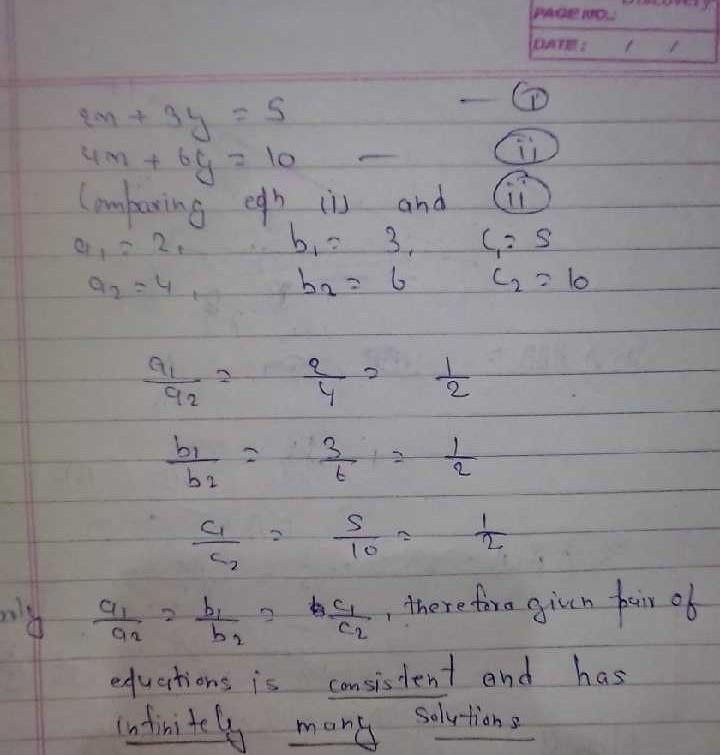 PAGE NO.:
DATE: / /
2x + 3y = 5 — (i)
4x + 6y = 10 — (ii)
Comparing eqn (i) and (ii)
a₁ = 2, b₁ = 3, c₁ = 5
a₂ = 4, b₂ = 6 c₂ = 10
a₁/a₂ = 2/4 = 1/2
b₁/b₂ = 3/6 = 1/2
c₁/c₂ = 5/10 = 1/2
a₁/a₂ = b₁/b₂ = c₁/c₂, therefore given pair of
equations is consistent and has
infinitely many solutions